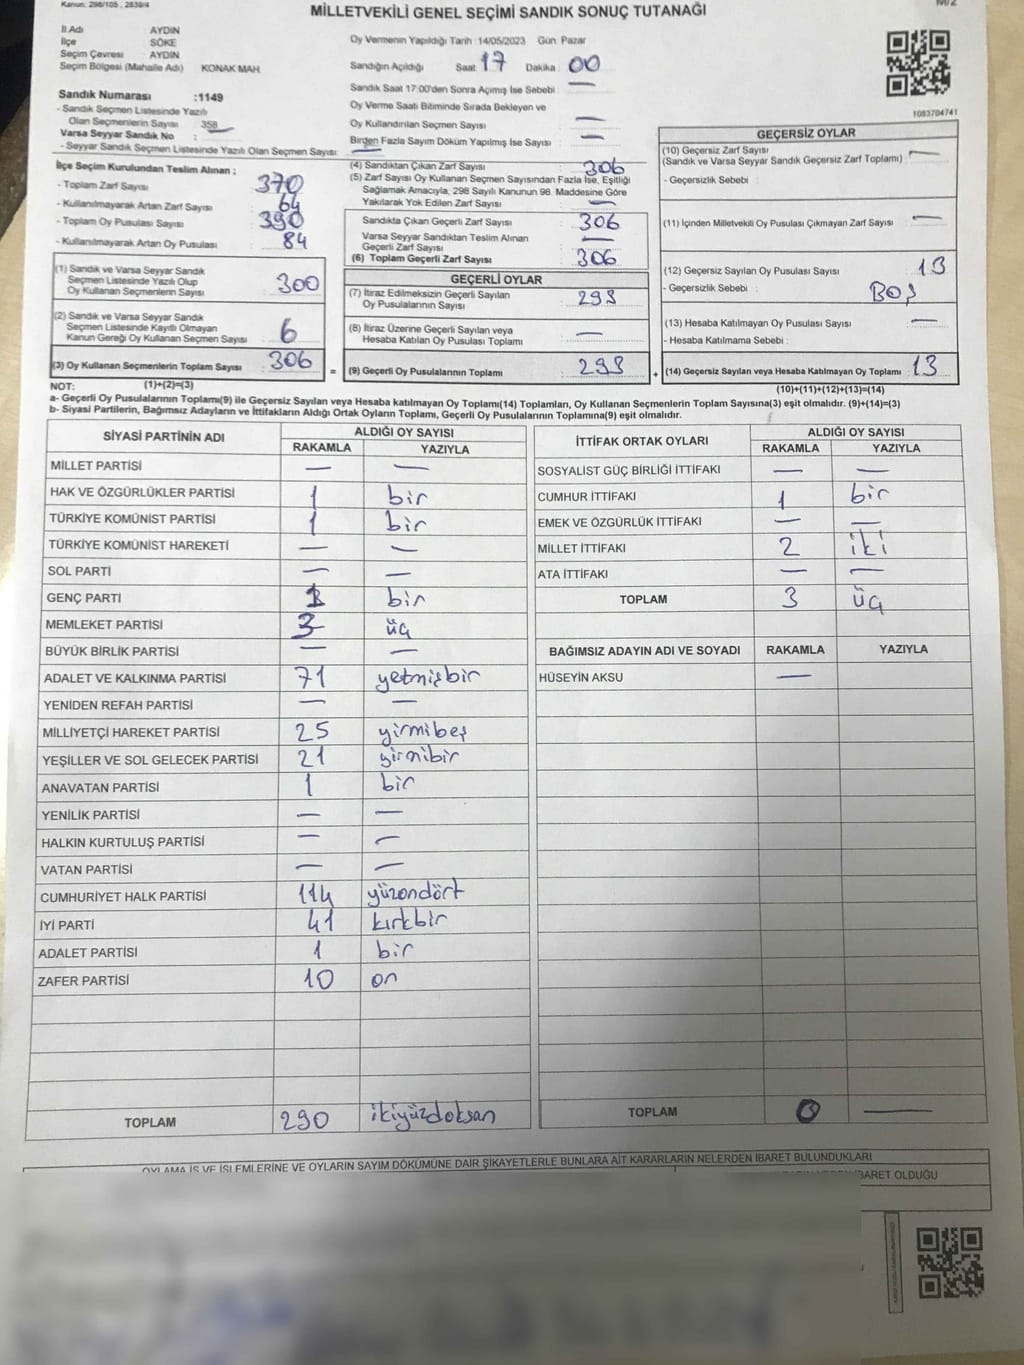 Kanun: 298/105 , 2839/4
MİLLETVEKİLİ GENEL SEÇİMİ SANDIK SONUÇ TUTANAĞI
İl Adı AYDIN
İlçe SÖKE
Seçim Çevresi AYDIN
Seçim Bölgesi (Mahalle Adı) KONAK MAH.
Sandık Numarası :1149
- Sandık Seçmen Listesinde Yazılı
Olan Seçmenlerin Sayısı : 358
Varsa Seyyar Sandık No :
- Seyyar Sandık Seçmen Listesinde Yazılı Olan Seçmen Sayısı: —
Oy Vermenin Yapıldığı Tarih :14/05/2023 Gün: Pazar
Sandığın Açıldığı Saat 17 Dakika : 00
Sandık Saat 17:00'den Sonra Açımış İse Sebebi : —
Oy Verme Saati Bitiminde Sırada Bekleyen ve
Oy Kullandırılan Seçmen Sayısı —
Birden Fazla Sayım Döküm Yapılmış İse Sayısı : —
1083704741
İlçe Seçim Kurulundan Teslim Alınan ;
- Toplam Zarf Sayısı 370
- Kullanılmayarak Artan Zarf Sayısı 64
- Toplam Oy Pusulası Sayısı 390
- Kullanılmayarak Artan Oy Pusulası 84
(1) Sandık ve Varsa Seyyar Sandık
Seçmen Listesinde Yazılı Olup
Oy Kullanan Seçmenlerin Sayısı 300
(2) Sandık ve Varsa Seyyar Sandık
Seçmen Listesinde Kayıtlı Olmayan
Kanun Gereği Oy Kullanan Seçmen Sayısı 6
(3) Oy Kullanan Seçmenlerin Toplam Sayısı 306
(1)+(2)=(3)
(4) Sandıktan Çıkan Zarf Sayısı 306
(5) Zarf Sayısı Oy Kullanan Seçmen Sayısından Fazla İse, Eşitliği
Sağlamak Amacıyla, 298 Sayılı Kanunun 98. Maddesine Göre
Yakılarak Yok Edilen Zarf Sayısı —
Sandıkta Çıkan Geçerli Zarf Sayısı 306
Varsa Seyyar Sandıktan Teslim Alınan
Geçerli Zarf Sayısı —
(6) Toplam Geçerli Zarf Sayısı 306
GEÇERLİ OYLAR
(7) İtiraz Edilmeksizin Geçerli Sayılan
Oy Pusulalarının Sayısı 293
(8) İtiraz Üzerine Geçerli Sayılan veya
Hesaba Katılan Oy Pusulası Toplamı —
= (9) Geçerli Oy Pusulalarının Toplamı 293
GEÇERSİZ OYLAR
(10) Geçersiz Zarf Sayısı —
(Sandık ve Varsa Seyyar Sandık Geçersiz Zarf Toplamı)
- Geçersizlik Sebebi :
(11) İçinden Milletvekili Oy Pusulası Çıkmayan Zarf Sayısı —
(12) Geçersiz Sayılan Oy Pusulası Sayısı 13
- Geçersizlik Sebebi : BOŞ
(13) Hesaba Katılmayan Oy Pusulası Sayısı —
- Hesaba Katılmama Sebebi :
+ (14) Geçersiz Sayılan veya Hesaba Katılmayan Oy Toplamı 13
(10)+(11)+(12)+(13)=(14)
NOT:
a- Geçerli Oy Pusulalarının Toplamı(9) ile Geçersiz Sayılan veya Hesaba katılmayan Oy Toplamı(14) Toplamları, Oy Kullanan Seçmenlerin Toplam Sayısına(3) eşit olmalıdır. (9)+(14)=(3)
b- Siyasi Partilerin, Bağımsız Adayların ve İttifakların Aldığı Ortak Oyların Toplamı, Geçerli Oy Pusulalarının Toplamına(9) eşit olmalıdır.
SİYASİ PARTİNİN ADI ALDIĞI OY SAYISI
RAKAMLA YAZIYLA
MİLLET PARTİSİ — —
HAK VE ÖZGÜRLÜKLER PARTİSİ 1 bir
TÜRKİYE KOMÜNİST PARTİSİ 1 bir
TÜRKİYE KOMÜNİST HAREKETİ — —
SOL PARTİ — —
GENÇ PARTİ 1 bir
MEMLEKET PARTİSİ 3 üç
BÜYÜK BİRLİK PARTİSİ — —
ADALET VE KALKINMA PARTİSİ 71 yetmişbir
YENİDEN REFAH PARTİSİ — —
MİLLİYETÇİ HAREKET PARTİSİ 25 yirmibeş
YEŞİLLER VE SOL GELECEK PARTİSİ 21 yirmibir
ANAVATAN PARTİSİ 1 bir
YENİLİK PARTİSİ — —
HALKIN KURTULUŞ PARTİSİ — —
VATAN PARTİSİ — —
CUMHURİYET HALK PARTİSİ 114 yüzondört
İYİ PARTİ 41 kırkbir
ADALET PARTİSİ 1 bir
ZAFER PARTİSİ 10 on
TOPLAM 290 ikiyüzdoksan
İTTİFAK ORTAK OYLARI ALDIĞI OY SAYISI
RAKAMLA YAZIYLA
SOSYALİST GÜÇ BİRLİĞİ İTTİFAKI — —
CUMHUR İTTİFAKI 1 bir
EMEK VE ÖZGÜRLÜK İTTİFAKI — —
MİLLET İTTİFAKI 2 iki
ATA İTTİFAKI — —
TOPLAM 3 üç
BAĞIMSIZ ADAYIN ADI VE SOYADI RAKAMLA YAZIYLA
HÜSEYİN AKSU —
TOPLAM 0 —
OYLAMA İŞ VE İŞLEMLERİNE VE OYLARIN SAYIM DÖKÜMÜNE DAİR ŞİKAYETLERLE BUNLARA AİT KARARLARIN NELERDEN İBARET BULUNDUKLARI
İBARET OLDUĞU